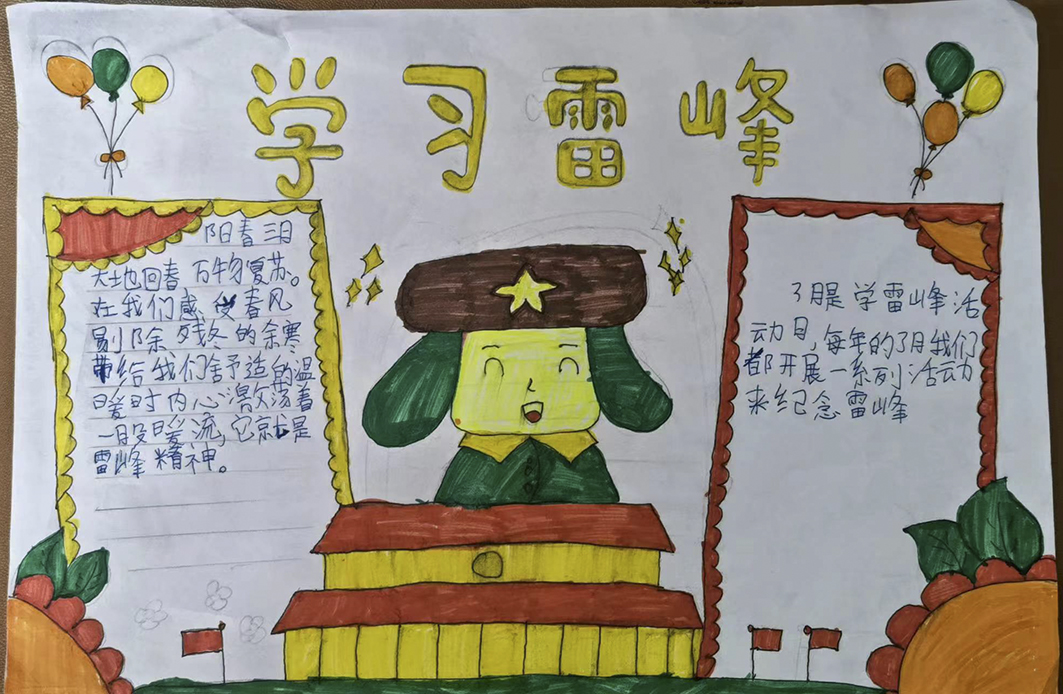 学习雷峰
阳春三月
大地回春 万物复苏。
在我们感受春风
剔除残冬的余寒
带给我们舒适的温
暖时内心激荡着
一股暖流,它就是
雷峰精神。
3月是学雷峰活
动日,每年的3月我们
都开展一系列活动
来纪念雷峰